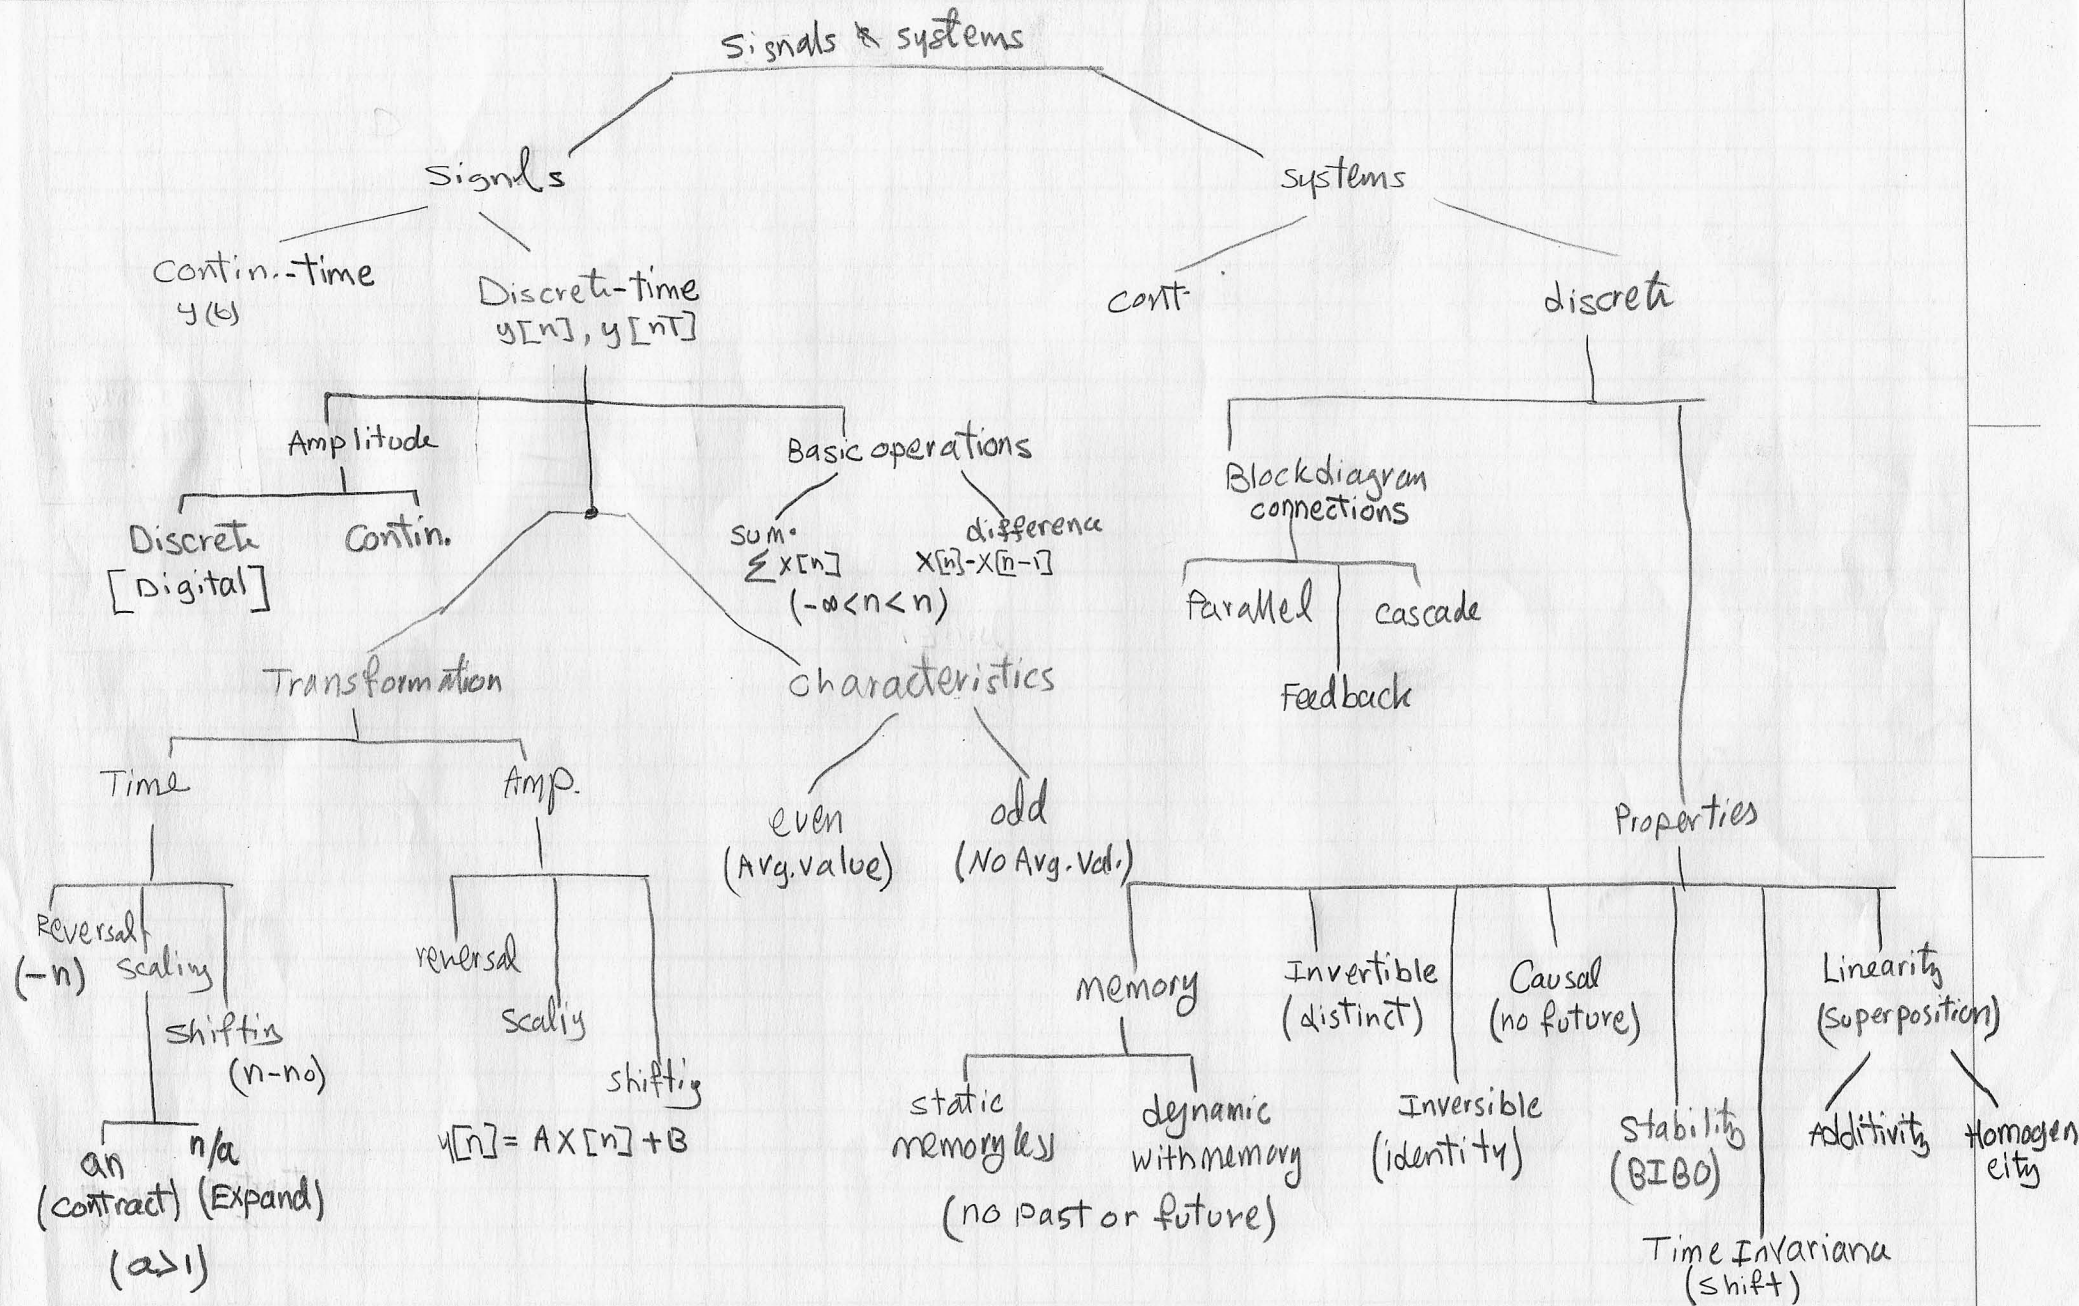 Signals & systems
Signals
systems
Contin.-time
y(t)
Discrete-time
y[n], y[nT]
cont.
discrete
Amplitude
Discrete
[Digital]
Contin.
Basic operations
sum.
Σx[n]
difference
x[n]-x[n-1]
(-∞<n<n)
Block diagram
connections
Parallel
cascade
Feedback
Transformation
characteristics
Time
Amp.
even
(Avg. value)
odd
(No Avg. Val.)
Properties
Reversal
(-n)
scaling
shifting
(n-no)
an
(contract)
n/a
(Expand)
(a>1)
reversal
scaling
shifting
y[n] = AX[n] + B
memory
static
memoryless
dynamic
with memory
(no past or future)
Invertible
(distinct)
Inversible
(identity)
Causal
(no future)
Stability
(BIBO)
Time Invariance
(shift)
Linearity
(superposition)
Additivity
Homogen
eity